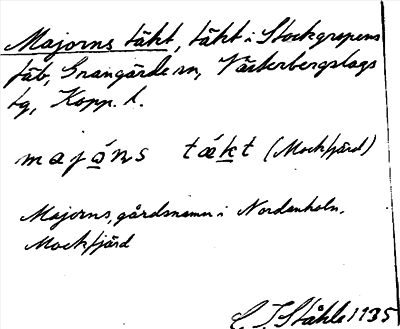 Majorns täkt, täkt i Stockgropens
fäb, Grangärde sn, Västerbergslags
tg, Kopp. l.
majǫ́ns tǽkt (Mockfjärd)
Majorns, gårdsnamn i Nordanholn,
Mockfjärd
E. J. Ståhle 1935